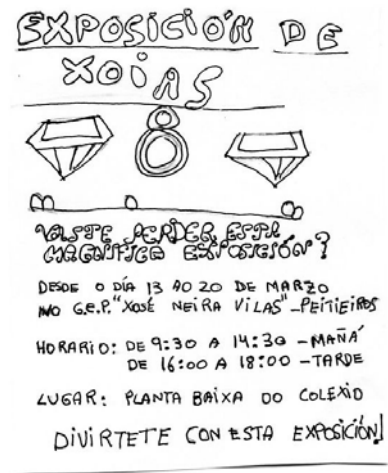 EXPOSICIÓN DE
XOIAS
VASTE PERDER ESTA
MAGNÍFICA EXPOSICIÓN?
DESDE O DÍA 13 AO 20 DE MARZO
NO C.E.P. "XOSÉ NEIRA VILAS" - PEITIEIROS
HORARIO: DE 9:30 A 14:30 - MAÑÁ
DE 16:00 A 18:00 - TARDE
LUGAR: PLANTA BAIXA DO COLEXIO
DIVIRTETE CON ESTA EXPOSICIÓN!